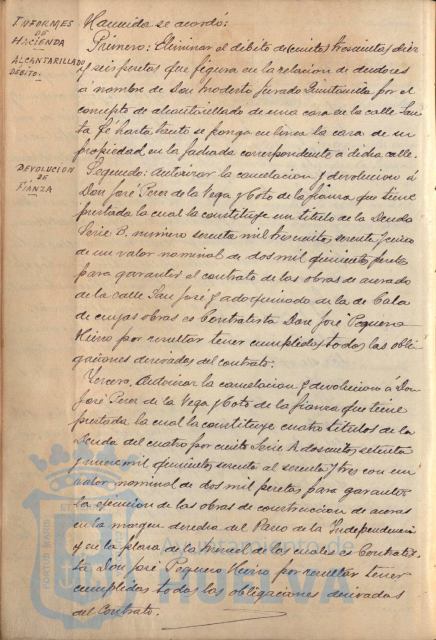 INFORMES
DE
HACIENDA
ALCANTARILLADO
DÉBITO.
Hacienda se acordó:
Primero: Eliminar el débito de cientos trescientas diez
y seis pesetas que figura en la relacion de deudores
a nombre de Don Modesto Jurado Quintanilla por el
concepto de alcantarillado de una casa de la calle San-
ta Fé hasta tanto se ponga en linea la casa de su
propiedad en la fachada correspondiente á dicha calle.
DEVOLUCION
DE
FIANZA
Segundo: Autorizar la cancelacion y devolucion á
Don José Perez de la Vega y Coto de la fianza que tiene
prestada la cual la constituye un titulo de la Deuda
Serie B. numero sesenta mil trescientos sesenta y cinco
de un valor nominal de dos mil quinientas pesetas
para garantir el contrato de las obras de acerado
de la calle San José y adoquinado de la de Cala
de cuyas obras es Contratista Don José Peguero
Hierro por resultar tener cumplidas todas las obli-
gaciones derivadas del contrato:
Tercero. Autorizar la cancelacion y devolucion á Don
José Perez de la Vega y Coto de la fianza que tiene
prestada la cual la constituye cuatro titulos de la
Deuda del cuatro por ciento Serie A doscientos setenta
y nueve mil quinientos sesenta al sesenta y tres con un
valor nominal de dos mil pesetas para garantir
la ejecucion de las obras de construccion de aceras
en la margen derecha del Paseo de la Independencia
y en la plaza de la misma de las cuales es Contratis-
ta Don José Peguero Hierro por resultar tener
cumplidas todas las obligaciones derivadas
del Contrato.
Ayuntamiento de
HUELVA
PORTUS MARIS